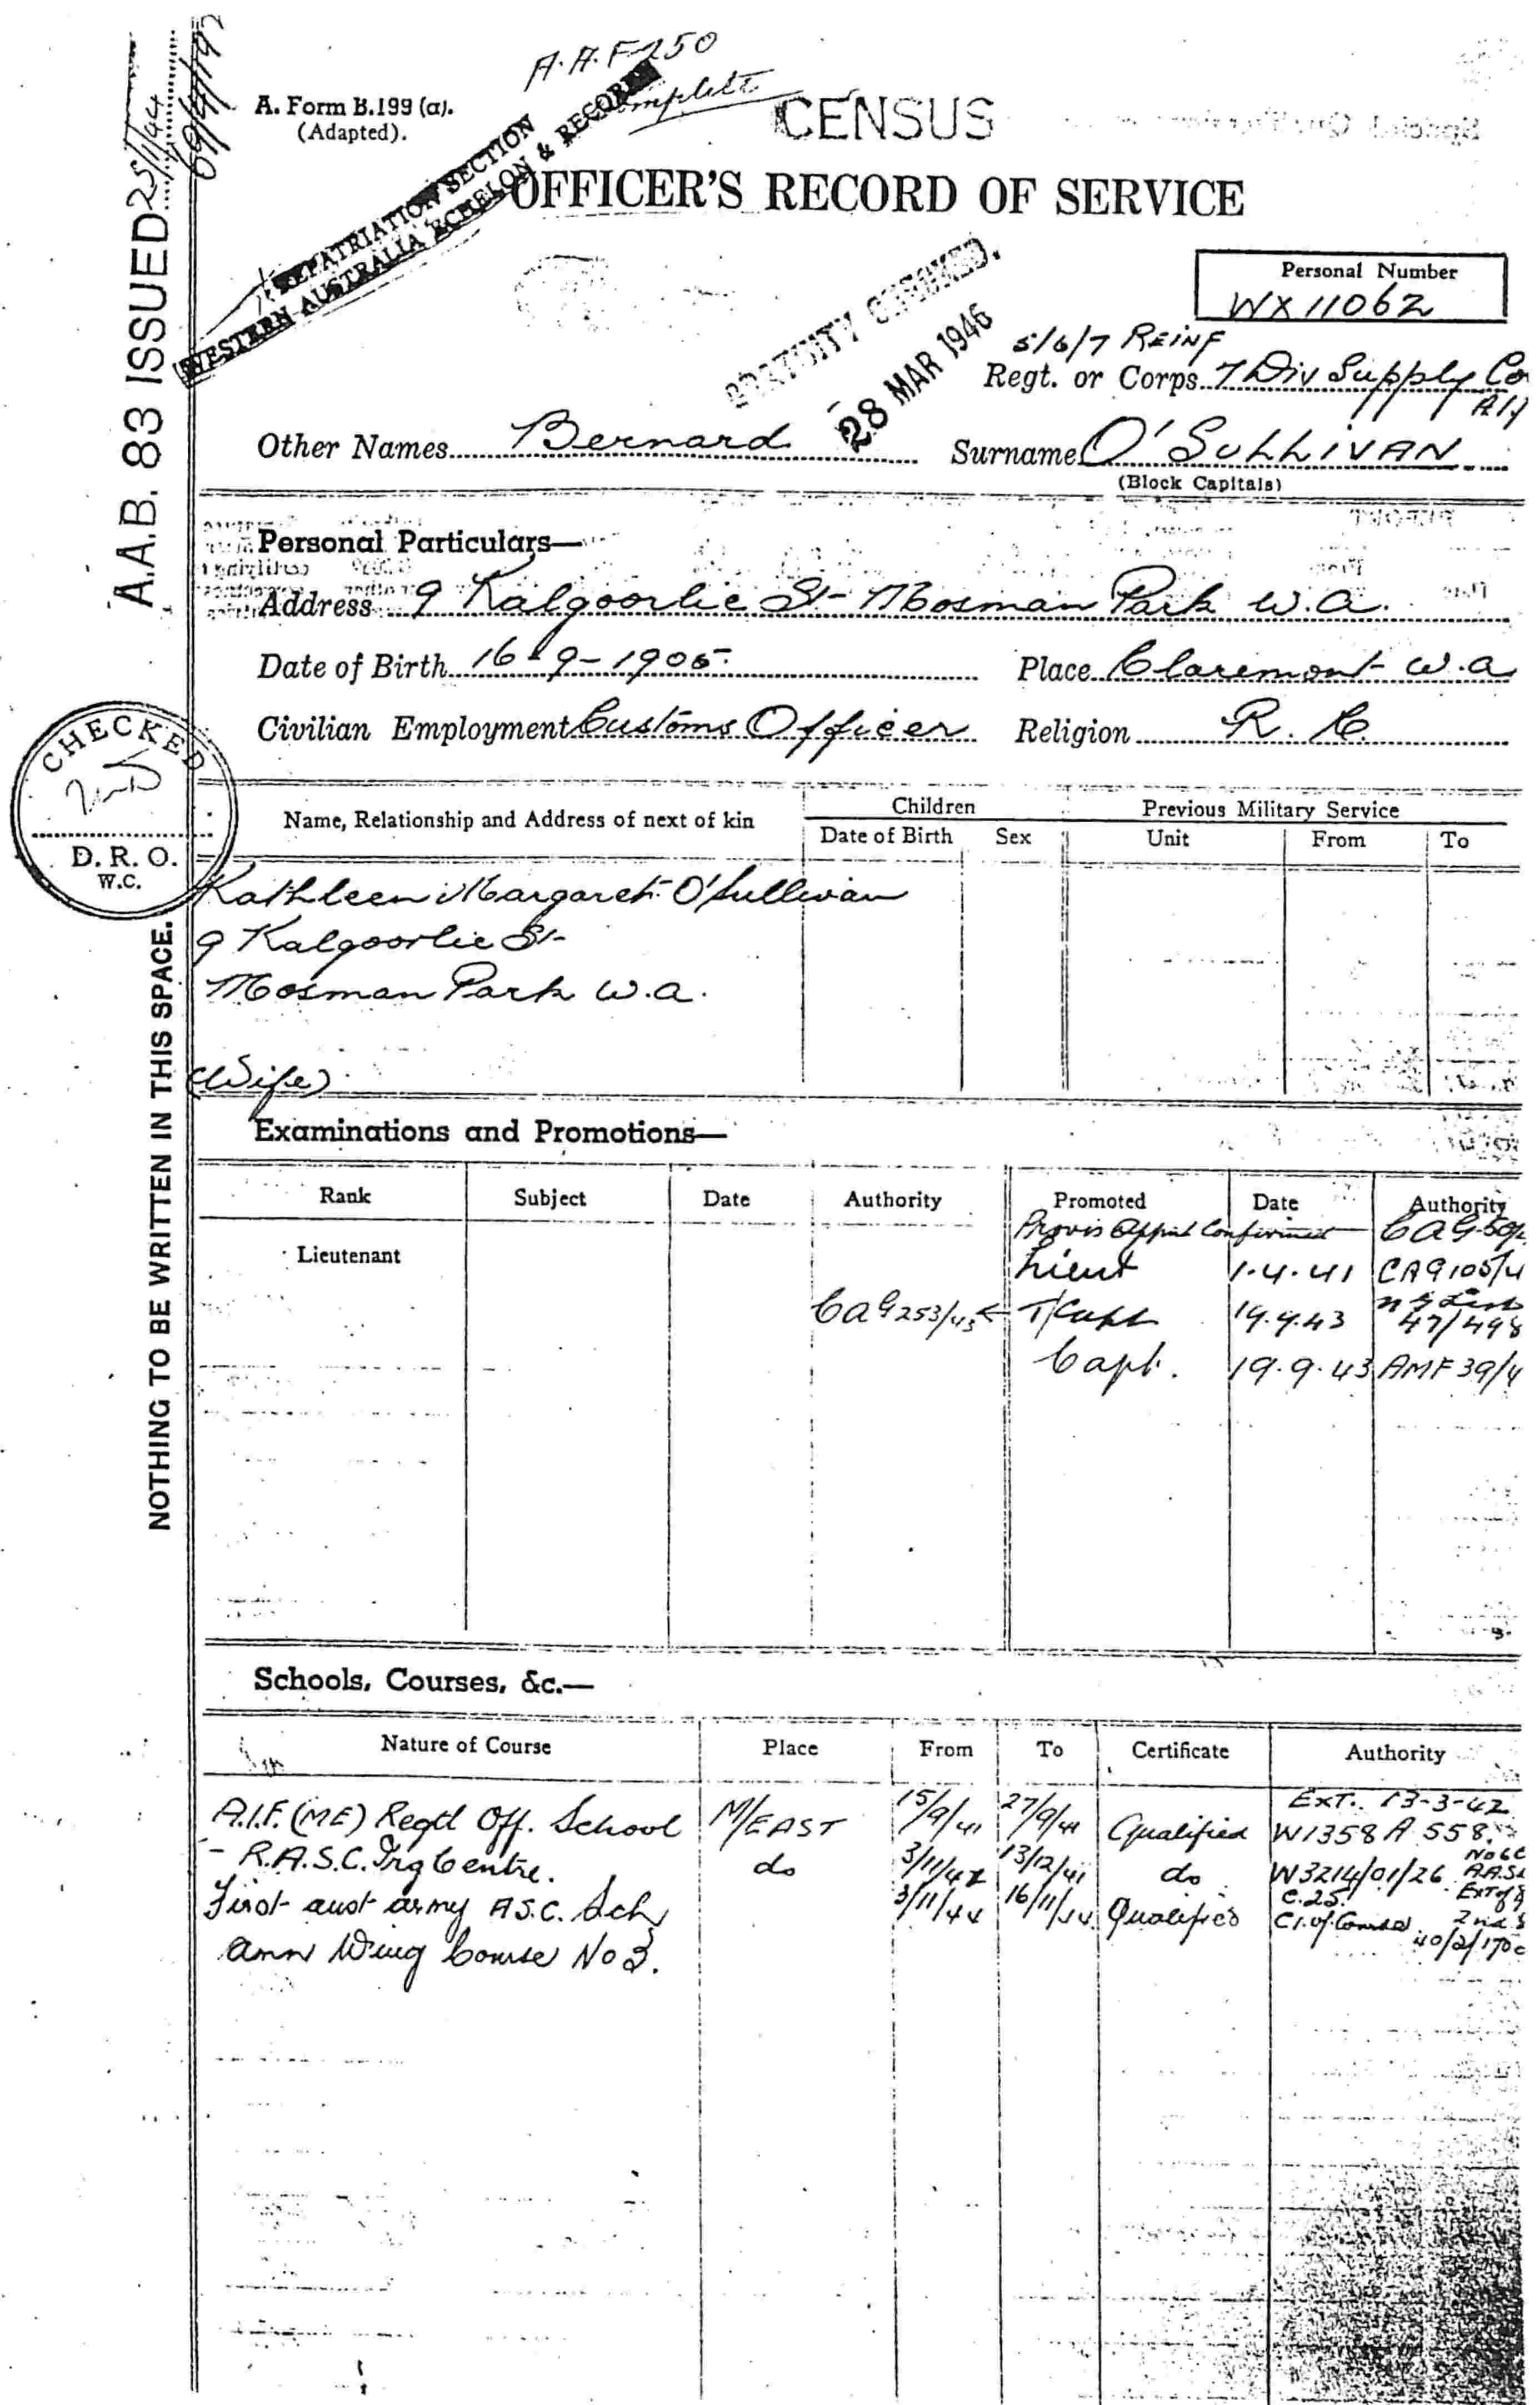 A.A.F 250
complete
A. Form B.199 (a).
(Adapted).
CENSUS
REPATRIATION SECTION
WESTERN AUSTRALIA ECHELON & RECORDS
OFFICER'S RECORD OF SERVICE
A.A.B. 83 ISSUED 25/1/44
Personal Number
WX 11062
GRATUITY CHECKED.
28 MAR 1946
5/6/7 REINF
Regt. or Corps 7 Div Supply Co
Other Names Bernard Surname O'SULLIVAN
(Block Capitals)
Personal Particulars—
Address 9 Kalgoorlie St Mosman Park W.A.
Date of Birth 16-9-1905 Place Claremont W.A
Civilian Employment Customs Officer Religion R. C.
CHECKED
D. R. O.
W.C.
Name, Relationship and Address of next of kin Children Previous Military Service
Date of Birth Sex Unit From To
Kathleen Margaret O'Sullivan
9 Kalgoorlie St
Mosman Park W.A.
(Wife)
NOTHING TO BE WRITTEN IN THIS SPACE.
Examinations and Promotions—
Rank Subject Date Authority Promoted Date Authority
Provis Appint Confirmed CAG 50/
Lieutenant Lieut 1.4.41 CAG 105/4
CAG 253/43 T/Capt 19.9.43 47/498
Capt. 19.9.43 AMF 39/4
Schools, Courses, &c.—
Nature of Course Place From To Certificate Authority
A.I.F. (ME) Regtl Off. School M/EAST 15/9/41 27/9/41 Qualified EXT. 13-3-42 W1358 A 558.
- R.A.S.C. Trg Centre. do 3/11/42 13/12/41 do W3214/01/26
First aust army A.S.C. Sch 3/11/44 16/11/44 Qualified C.25.
Amn Wing Course No 3. 40/2/170